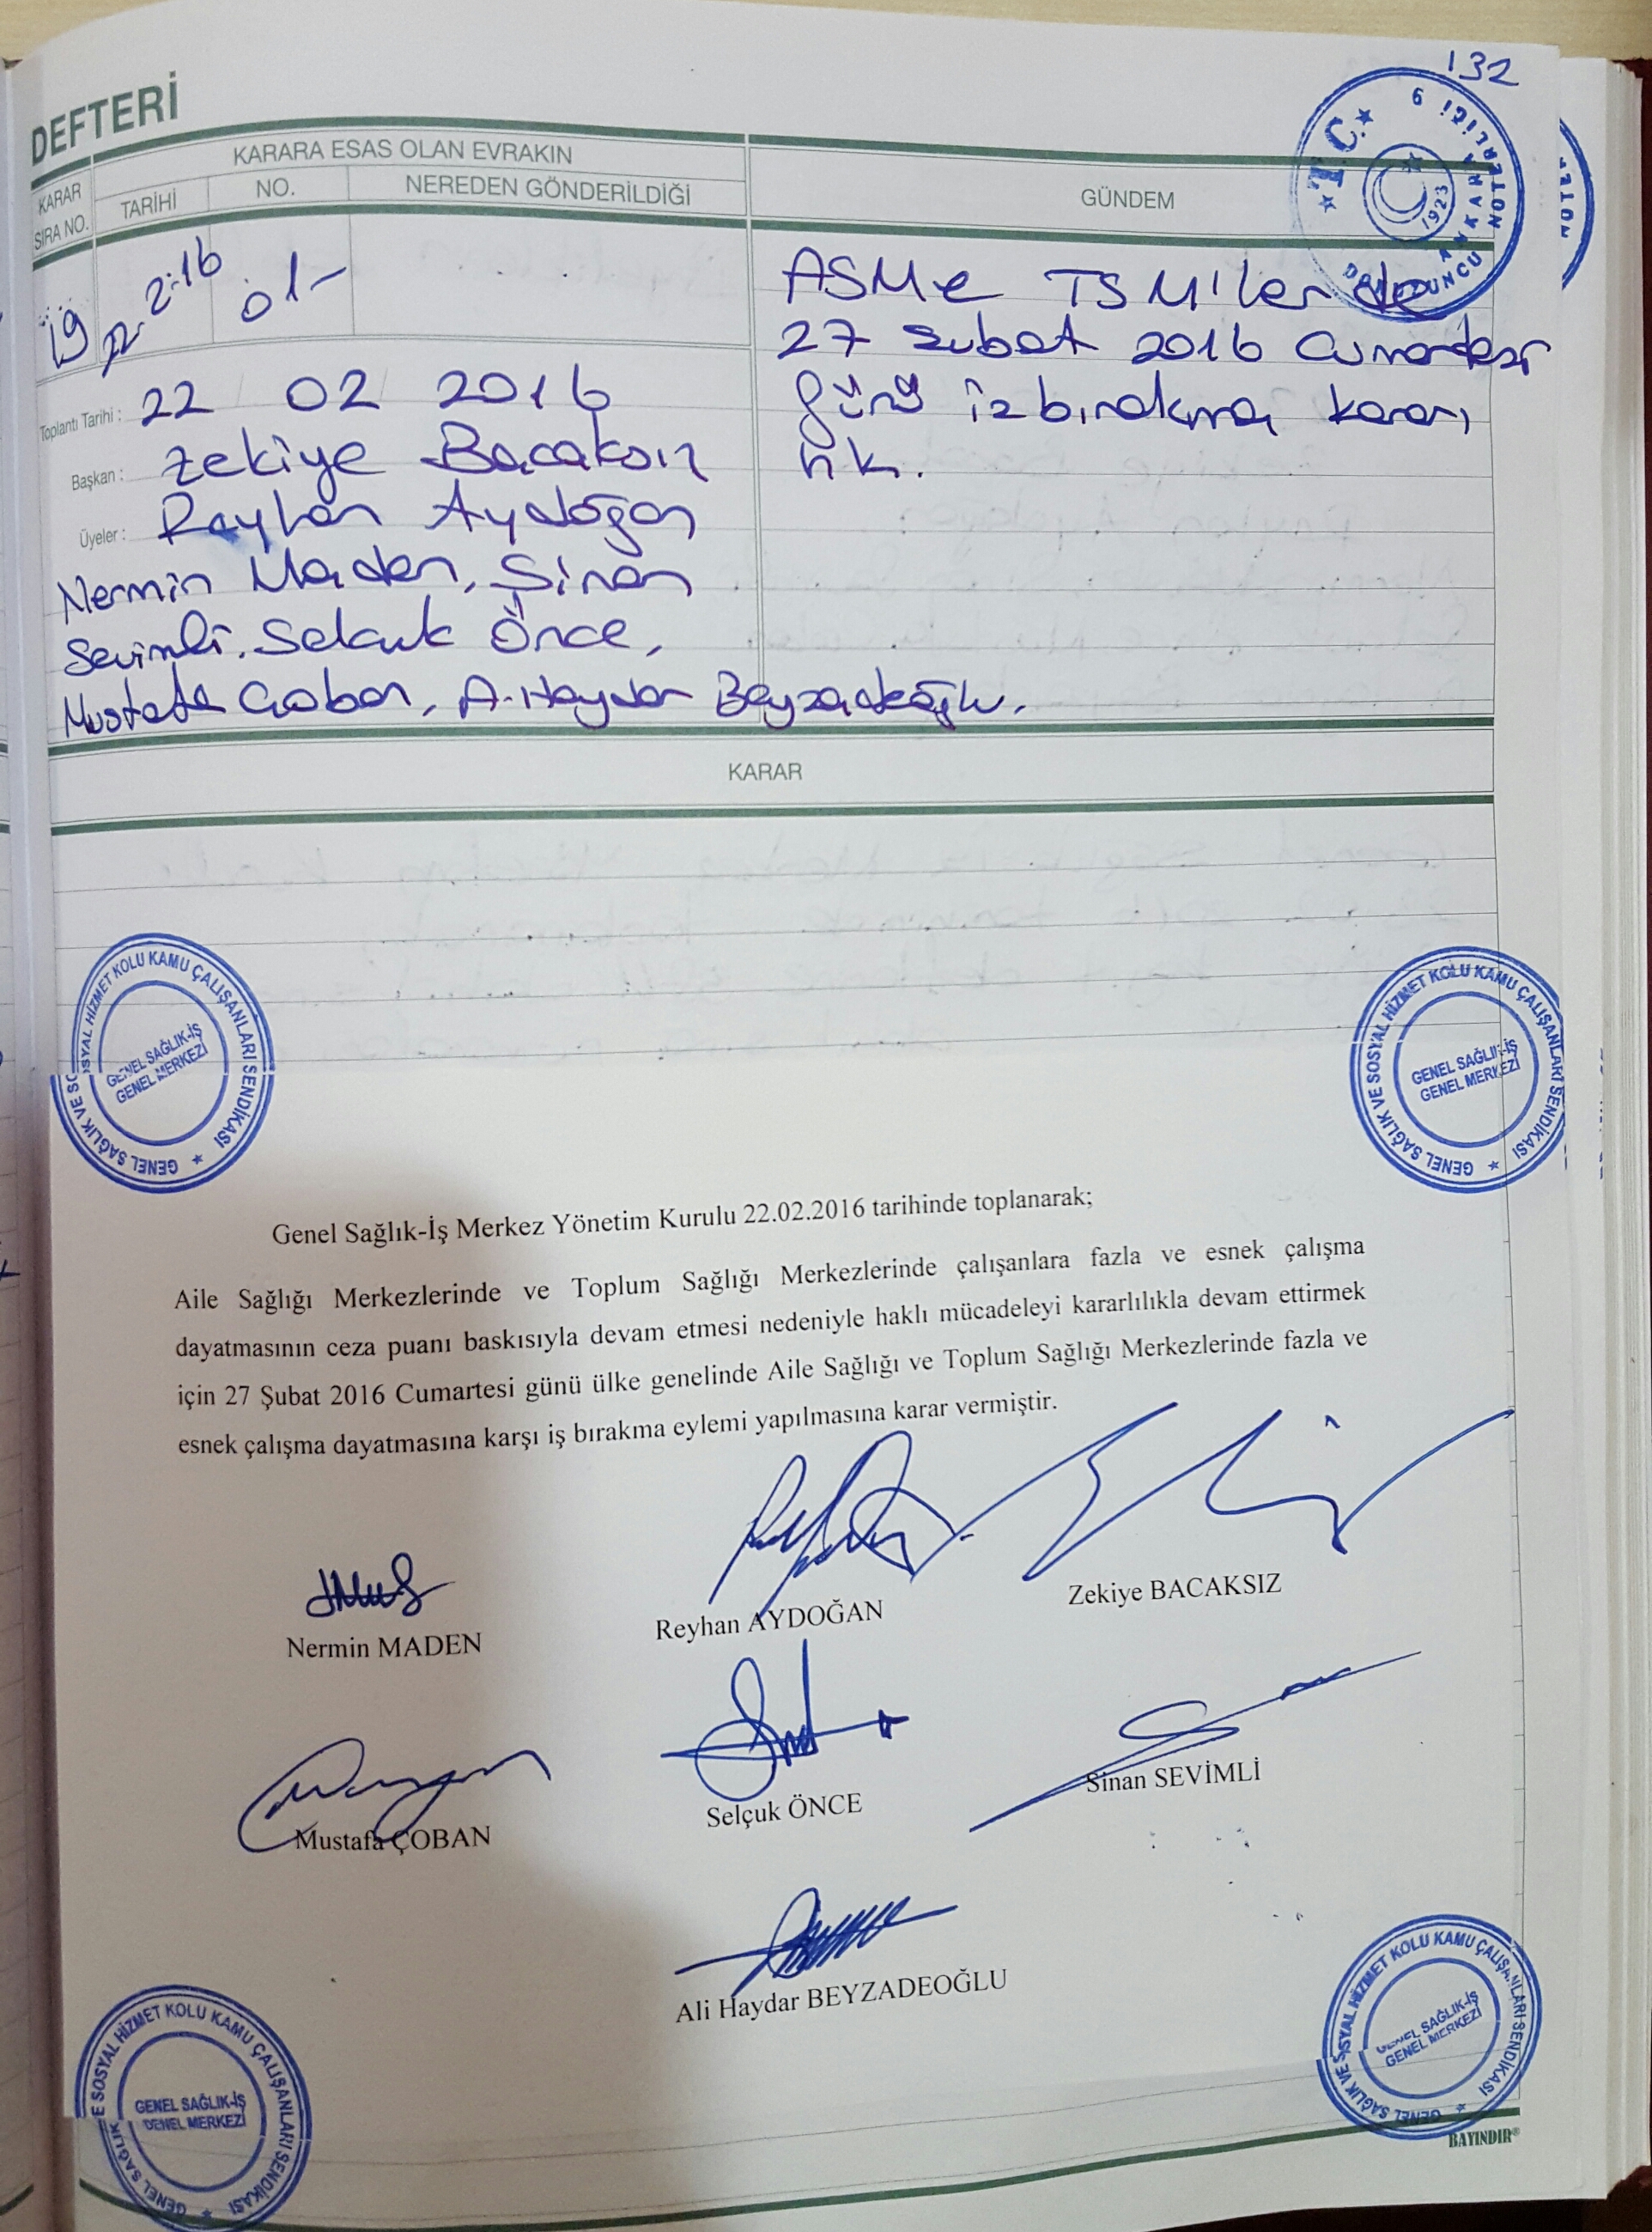 132
DEFTERİ
KARARA ESAS OLAN EVRAKIN
KARAR SIRA NO.
TARİHİ
NO.
NEREDEN GÖNDERİLDİĞİ
GÜNDEM
T.C.
1923
ANKARA
NOTERLİĞİ
19
22.2.16
01-
ASM ve TSM'lerde
27 Şubat 2016 Cumartesi
günü iş bırakma kararı
hk.
Toplantı Tarihi : 22 02 2016
Başkan : Zekiye Bacaksız
Üyeler : Reyhan Aydoğan
Nermin Maden, Sinan
Sevimli, Selçuk Önce,
Mustafa Çoban, A.Haydar Beyzadeoğlu.
KARAR
GENEL SAĞLIK VE SOSYAL HİZMET KOLU KAMU ÇALIŞANLARI SENDİKASI
GENEL SAĞLIK-İŞ
GENEL MERKEZİ
GENEL SAĞLIK VE SOSYAL HİZMET KOLU KAMU ÇALIŞANLARI SENDİKASI
GENEL SAĞLIK-İŞ
GENEL MERKEZİ
Genel Sağlık-İş Merkez Yönetim Kurulu 22.02.2016 tarihinde toplanarak;
Aile Sağlığı Merkezlerinde ve Toplum Sağlığı Merkezlerinde çalışanlara fazla ve esnek çalışma
dayatmasının ceza puanı baskısıyla devam etmesi nedeniyle haklı mücadeleyi kararlılıkla devam ettirmek
için 27 Şubat 2016 Cumartesi günü ülke genelinde Aile Sağlığı ve Toplum Sağlığı Merkezlerinde fazla ve
esnek çalışma dayatmasına karşı iş bırakma eylemi yapılmasına karar vermiştir.
Nermin MADEN
Reyhan AYDOĞAN
Zekiye BACAKSIZ
Mustafa ÇOBAN
Selçuk ÖNCE
Sinan SEVİMLİ
Ali Haydar BEYZADEOĞLU
GENEL SAĞLIK VE SOSYAL HİZMET KOLU KAMU ÇALIŞANLARI SENDİKASI
GENEL SAĞLIK-İŞ
GENEL MERKEZİ
GENEL SAĞLIK VE SOSYAL HİZMET KOLU KAMU ÇALIŞANLARI SENDİKASI
GENEL SAĞLIK-İŞ
GENEL MERKEZİ
BAYINDIR®